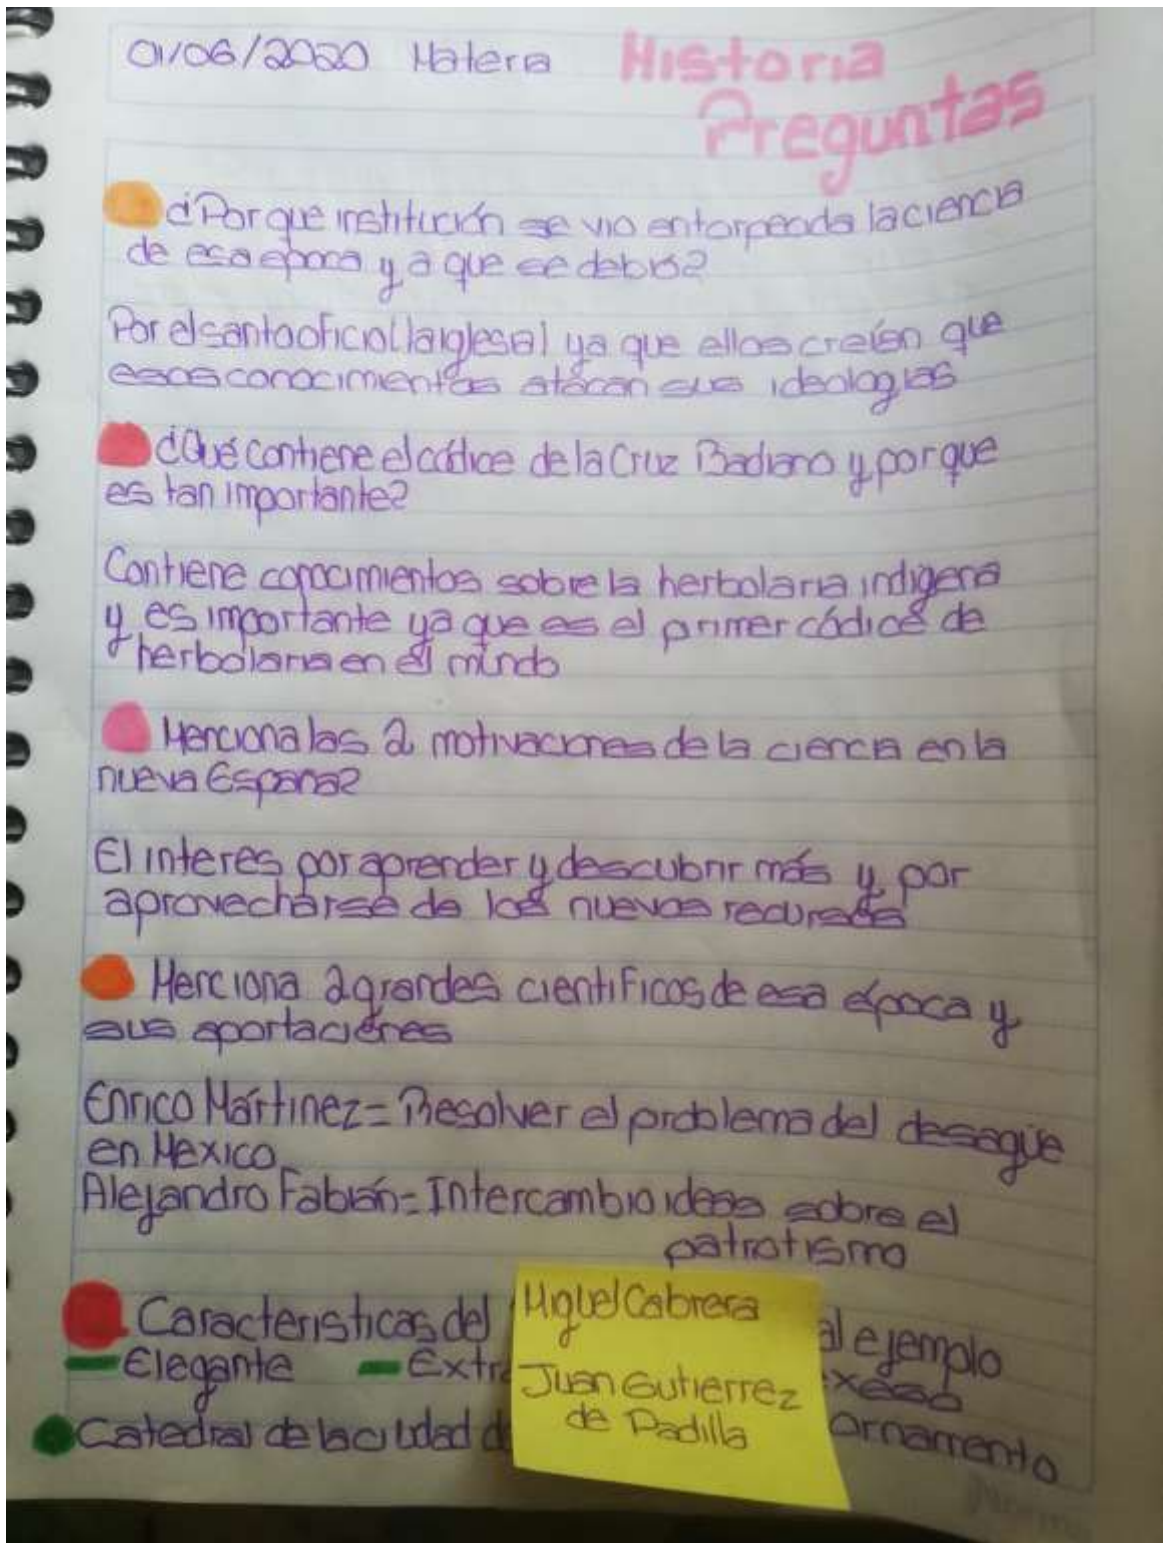 01/06/2020 Materia Historia
Preguntas
¿Por que institución se vio entorpecida la ciencia
de esa epoca y a que se debió?
Por el santo oficio (la iglesa) ya que ellos creían que
esos conocimientos atacan sus ideologías
¿Qué contiene el códice de la Cruz Badiano y por que
es tan importante?
Contiene conocimientos sobre la herbolaria indígena
y es importante ya que es el primer códice de
herbolaria en el mundo
Menciona las 2 motivaciones de la ciencia en la
nueva España?
El interes por aprender y descubrir más y por
aprovecharse de los nuevos recursos
Menciona 2 grandes cientificos de esa época y
sus aportaciones
Enrico Mártinez = Resolver el problema del desagüe
en Mexico
Alejandro Fabián = Intercambio ideas sobre el
patrotismo
Caracteristicas del al ejemplo
Elegante
Catedral de la ciudad ornamento
Miguel Cabrera
Juan Gutierrez
de Padilla